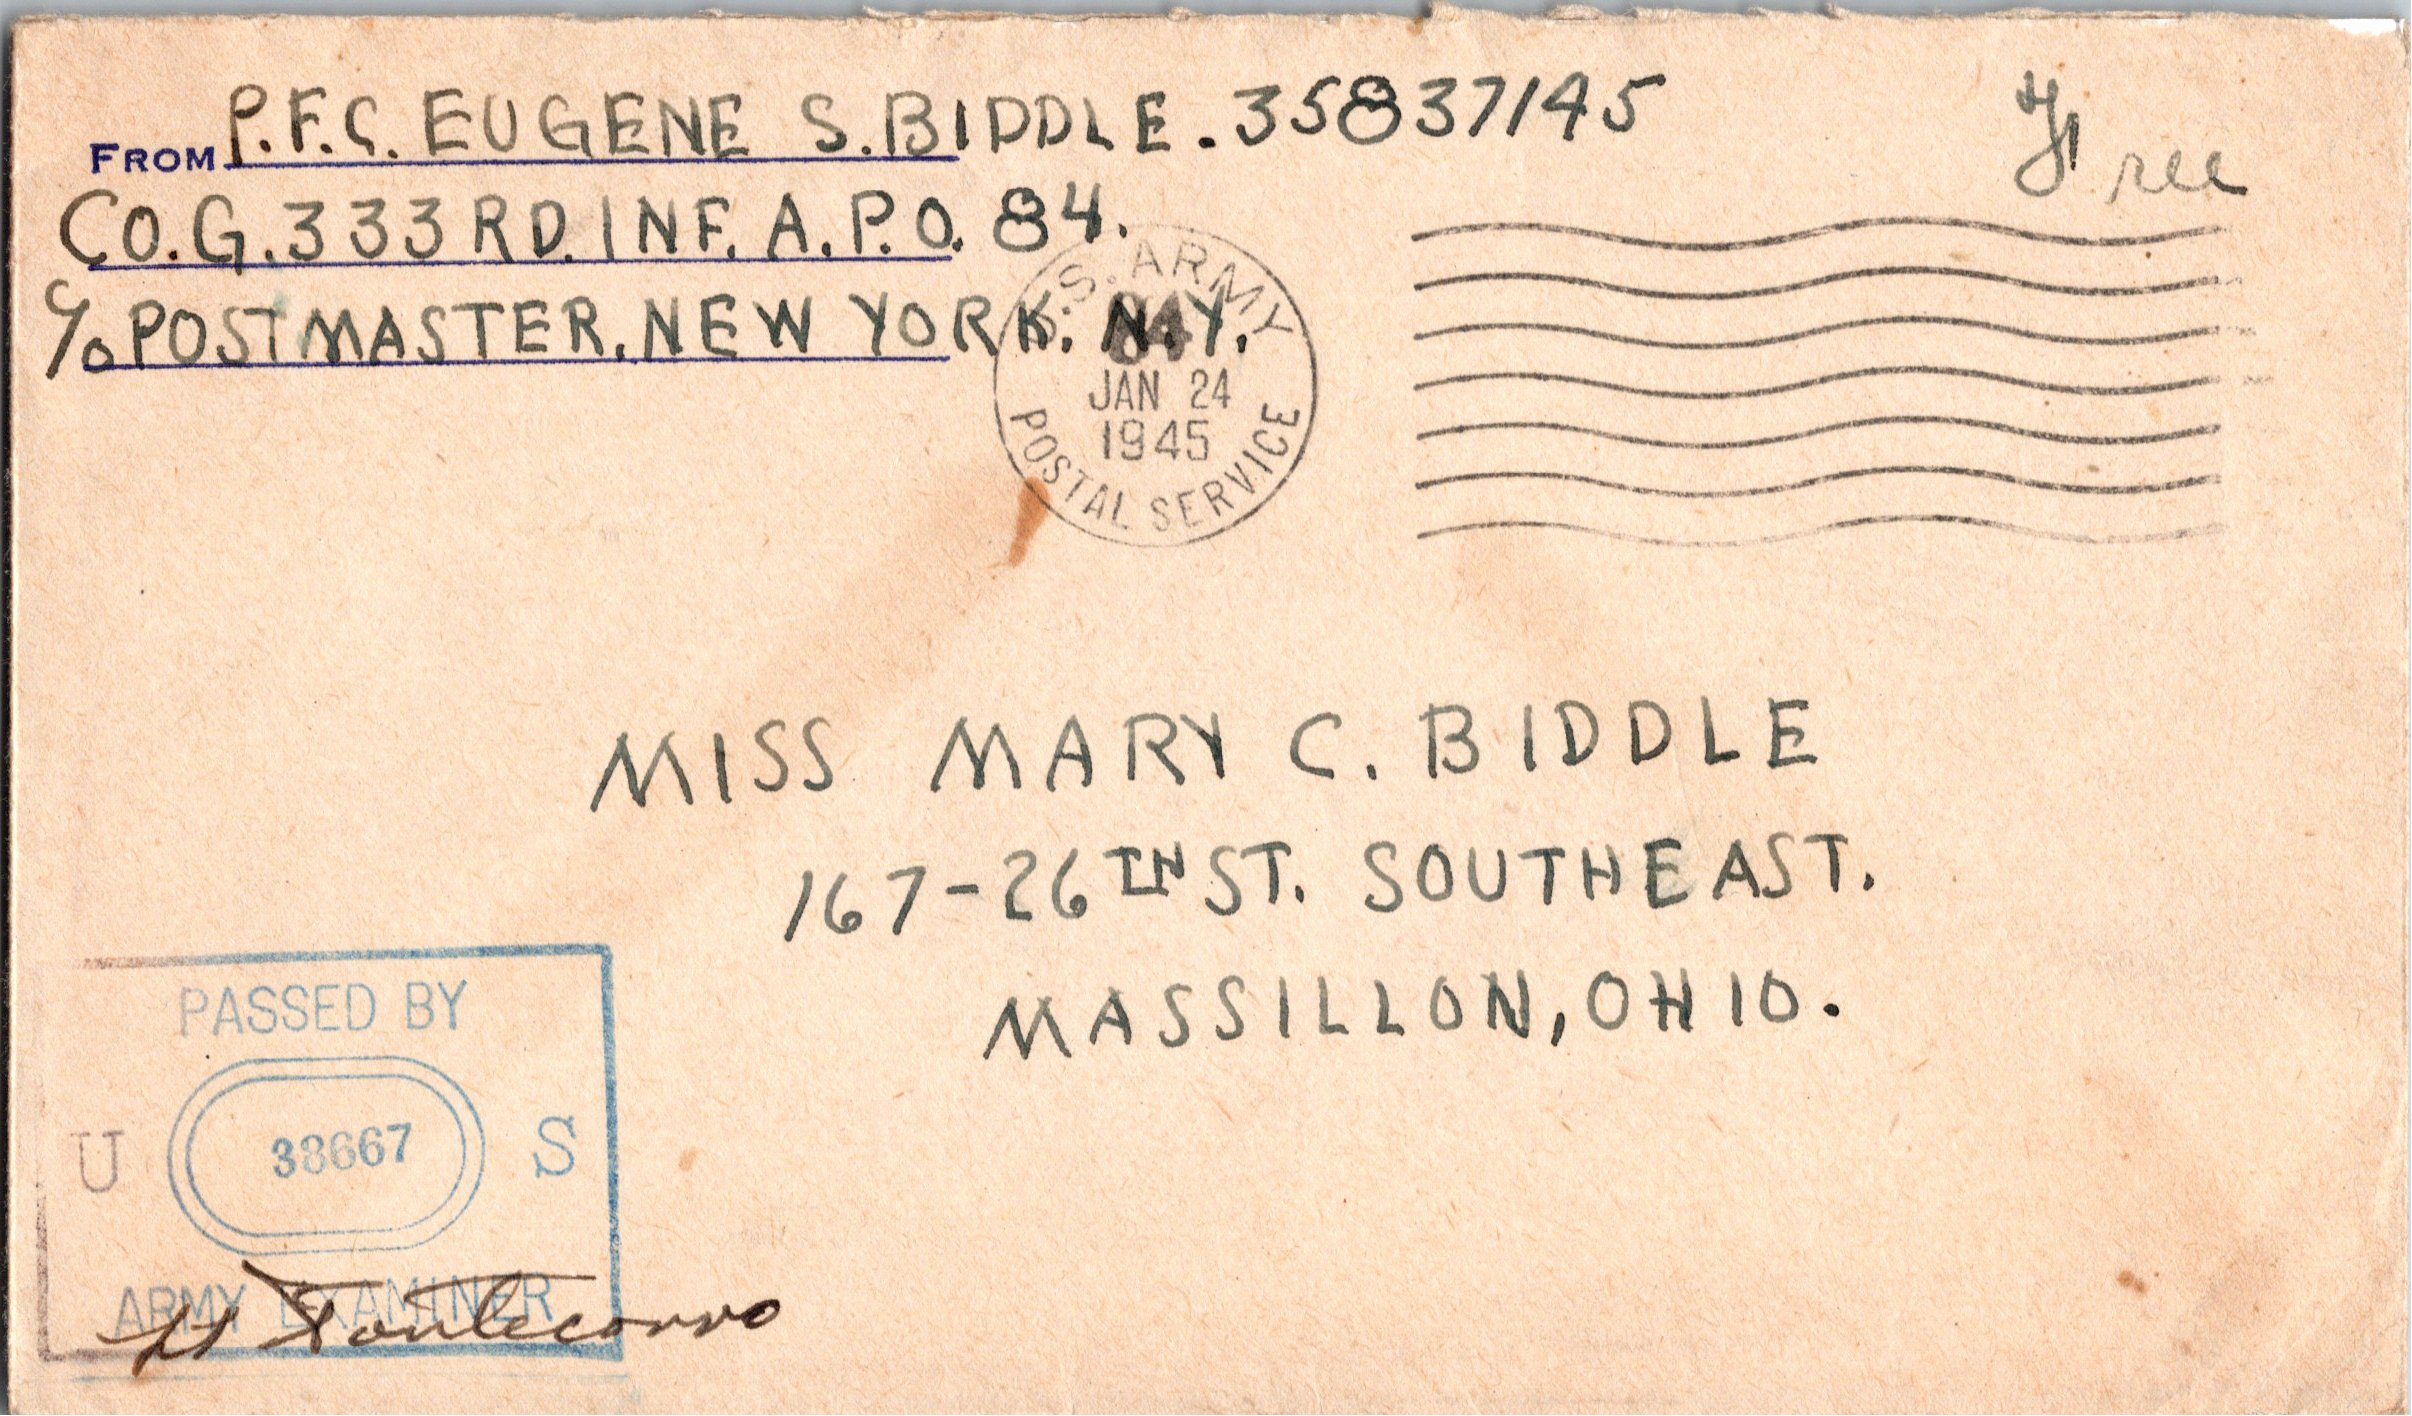 FROM P.F.C. EUGENE S. BIDDLE. 35837145
Free
CO. G. 333RD. INF. A.P.O. 84.
C/O POSTMASTER. NEW YORK. N.Y.
U.S. ARMY
JAN 24
1945
POSTAL SERVICE
MISS MARY C. BIDDLE
167-26TH ST. SOUTHEAST.
MASSILLON, OHIO.
PASSED BY
U 38667 S
ARMY EXAMINER
Lt